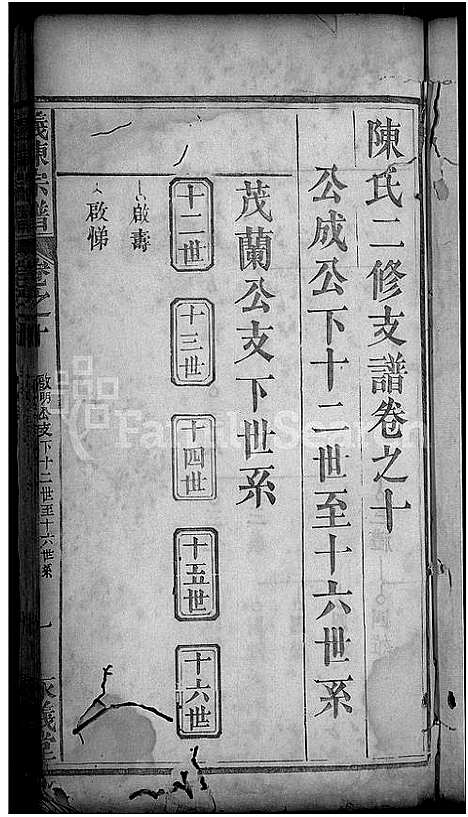 陳氏二修支譜卷之十
公成公下十二世至十六世系
茂蘭公支下世系
十二世
十三世
十四世
十五世
十六世
啟壽
啟悌
義陳宗譜
卷之十
啟明公支下十二世至十六世系
一
義堂
FamilySearch